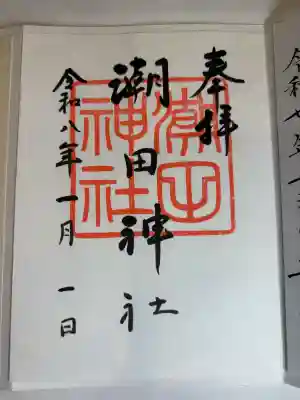 奉拝
潮田神社
令和八年一月一日
潮田
神社
令和七年十